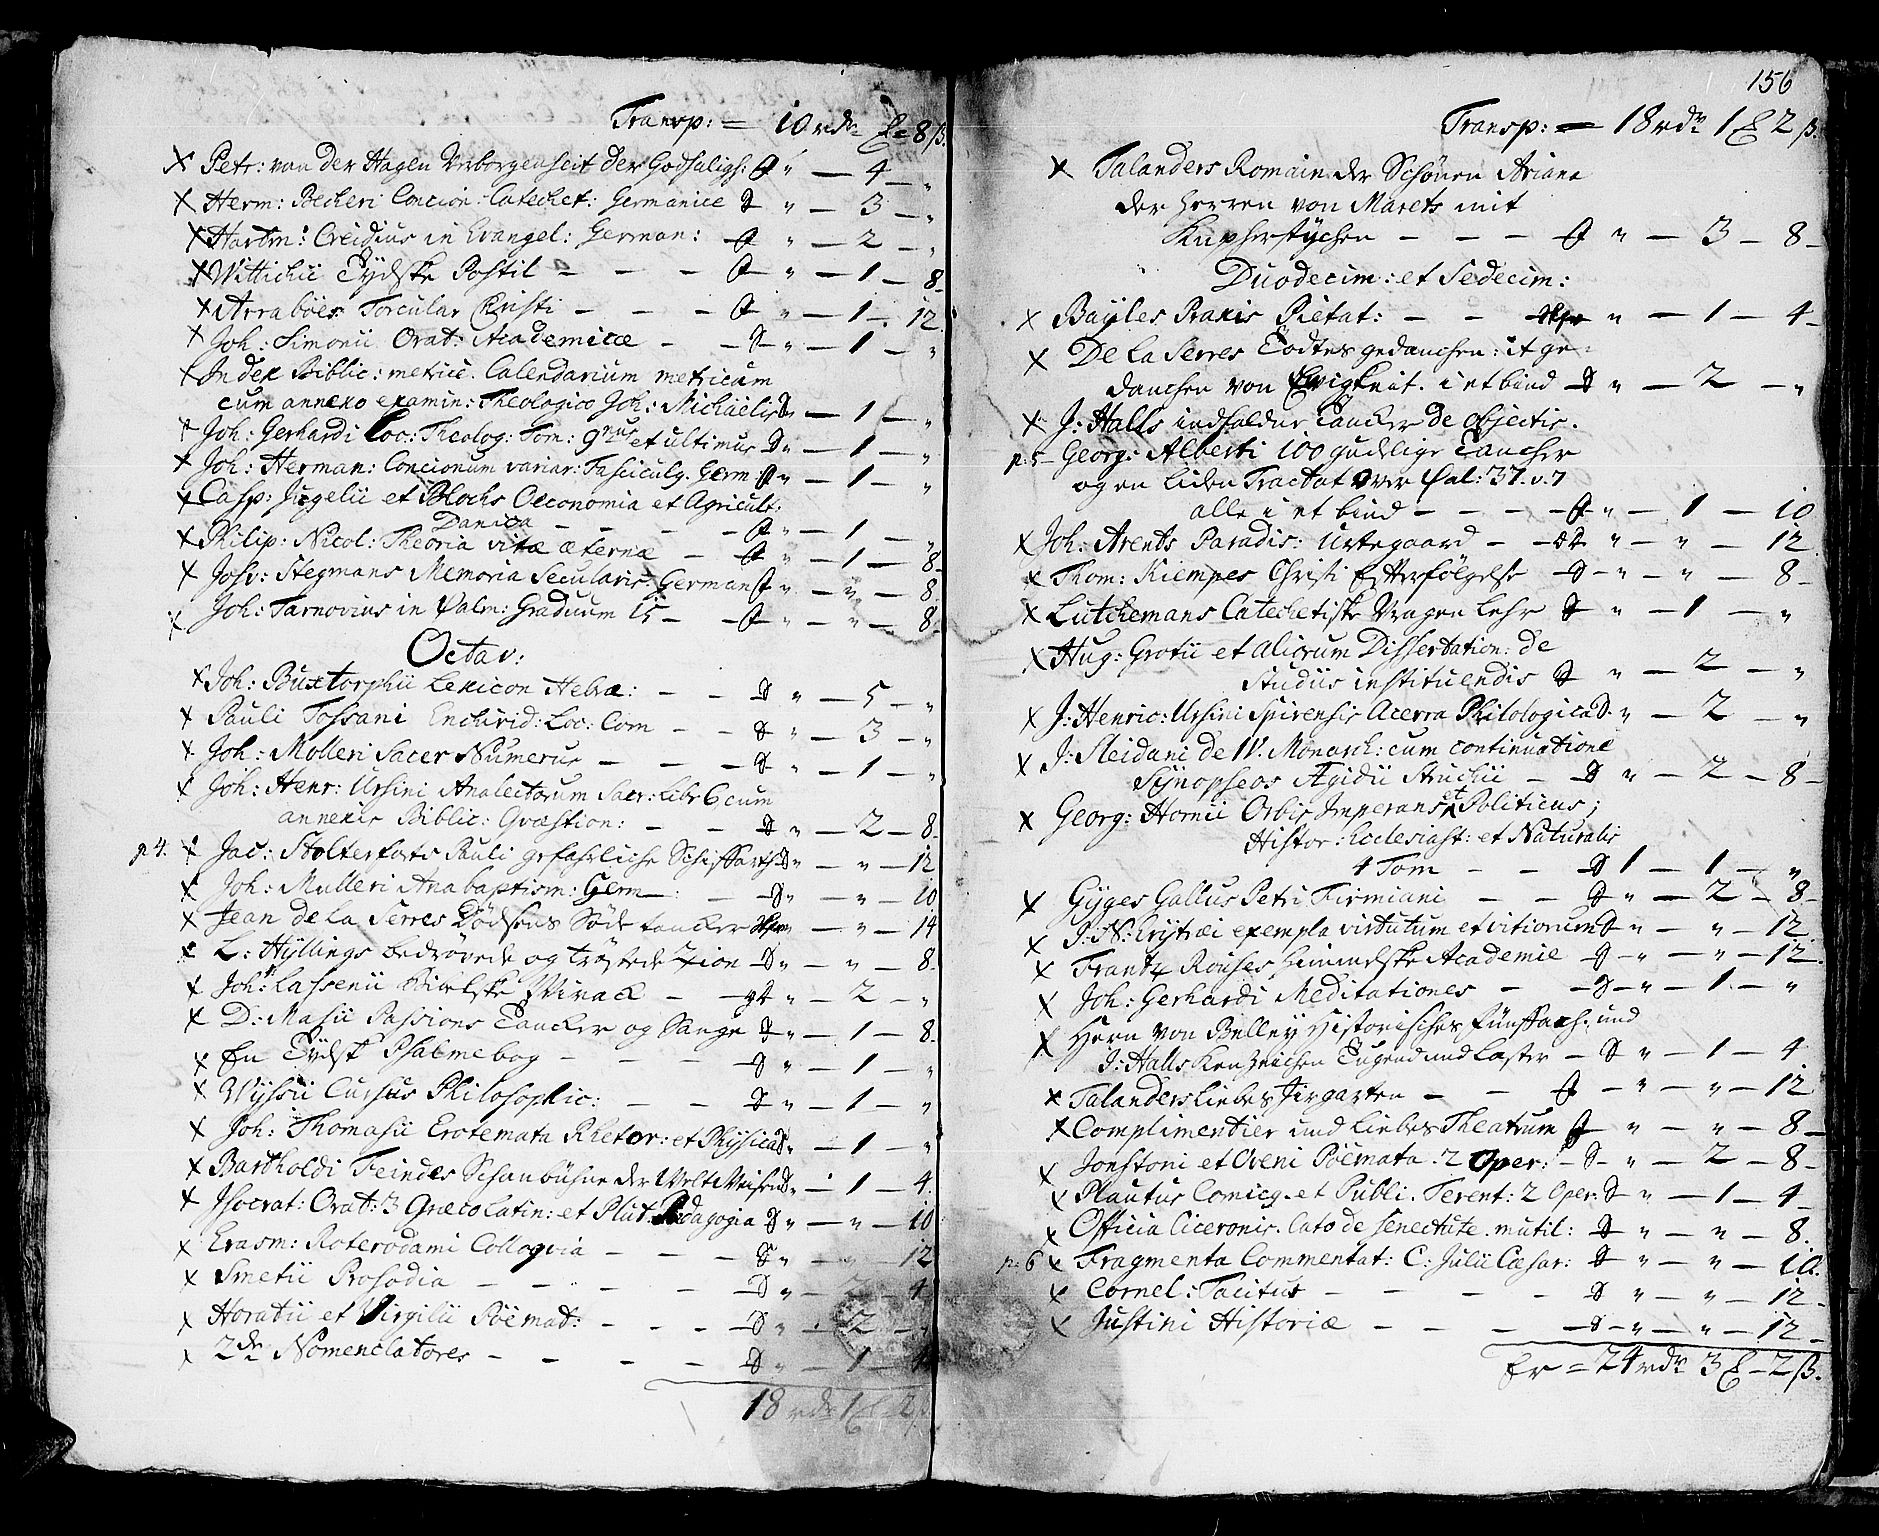 Transp: = 10 rdr = 8 ß.
x Petr: von der Hagen Verborgenheit der Godsaligh: " — 4 — "
x Herm: Beckeri Concion: Catechet: Germanice " — 3 — "
x Hartm: Creidius in Evangel: German: " — 2 — "
x Wittichii Tydske Postil — — — " — 1 — 8 —
x Arraböes Torcular Christi — — — " — 1 — 12
x Joh: Simonii Orat: Academicæ — — " — 1 — "
x Index Biblic: metric. Calendarium metricum
cum annexo examin: Theologico Joh: Michäelis " — 1 — "
x Joh: Gerhardi Loc: Theolog: Tom: 9nus et ultimus " — 1 — "
x Joh: Herman: Concionum variar: Fasciculg. Germ " — 1 — "
x Casp: Jugelii et Blochs Oeconomia et Agricult:
Danica — — — " — 1 — "
x Philip: Nicol: Theoria vitæ æternæ — " — 1 — 8 —
x Josv: Stegmans Memoria Secularis. German " — " — 8
x Joh: Tarnovius in Psalm: Graduum 15 — — " — " — 8 —
Octav:
x Joh: Buxtorphii Lexicon Hebræ: — — " — 5 — "
x Pauli Tossani Enchirid: Loc: Com — — " — 3 — "
x Joh: Molleri Sacer Numerus — — — " — 1 — "
x Joh: Henr: Ursini Analectorum Sacr: Libr 6 cum
annexis Biblic: Qvæstion: — — " — 2 — 8 —
p 4. x Jac: Stolterfots Pauli gefahrliche Schiffarth " — " — 12
x Joh: Mulleri Anabaptism: Germ — : — " — " — 10
x Jean de la Serres Dödsens Söde tancker " — " — 14
x L: Hyllings bedrövede og tröstede Zion — " — " — 8
x Joh: Lassenii Kielske Virack — — " — 2 — "
x D: Masii Passions Tancker og Sange " — 1 — 8 —
x En Tydsk Psalmebog — — — " — 1 — "
x Wyssii Cursus Philosophic: — — " — 1 — "
x Joh: Thomasii Erotemata Rhetor: et Physica " — 1 — "
x Bartholdi Feindes Schaubühne der Welt " — 1 — 4
x Isocrat: Orat: 3 Græcolatin: et Plut. Pædagogia " — " — 10
x Erasm: Roterodami Colloqvia — — — " — " — 12
x Smetii Prosodia — — — — " — 2 — 4
x Horatii et Virgilii Pöemat: — — — " — 2 — "
x 2de Nomenclatores — — — — " — 1 —
18 rdr 1 2 ß
156
Transp: = 18 rdr 1 2 ß.
x Talanders Romain der Schönen Ariana
der Herren von Marets mit
Kupferstychen — — — " — 3 — 8 —
Duodecim: et Sedecim:
x Bayles Praxis Pietat: — — " — 1 — 4 —
x De la Serres Todtes gedanchen: it ge-
danchen von Ewigkeit. i et bind — " — 2 — "
x J: Halls indfaldne Tancker de Objectis.
p: 5 — Georg: Alberti 100 gudelige Tancker
og en liden Tractat over Psal: 37. v. 7
alle i et bind — — — " — 1 — 10
x Joh: Arents Paradis: Urtegaard — — " — " — 12
x Thom: Kiempes Christi Efterfölgelse — " — " — 8 —
x Lutchemans Catechetiske Vragen Lehr " — 1 — "
x Hug: Grotii et aliorum Dissertation: de
Studiis instituendis " — 2 — "
x J: Henric: Ursini Spirensis Acerra Philologica " — 2 — "
x J: Sleidani de IV. Monarch: cum continuatione
Synopseos Ægidii Struchii — " — 2 — 8 —
x Georg: Hornii Orbis Imperans et Politicus;
Histor: Ecclesiast: et Naturalis
4 Tom — — 1 — 1 — "
x Gyges Gallus Petri Firmiani — — " — 2 — 8 —
x J: N: Erytræi exempla virtutum et vitiorum " — " — 12
x Frantz Rouses Himmelske Academie — " — " — 12
x Joh: Gerhardi Meditationes — — " — 1 — "
x Herr von Belley Historisches fünffach: und
J: Halls Kenzeichen Tugend und Laster — " — 1 — 4
x Talanders Liebes Jirgarten — — — " — " — 12
x Complimentier und Liebes Theatrum " — " — 8 —
x Jonstoni et Oveni Pöemata. 2 Oper: — " — 2 — 8 —
x Plautus Comicg. et Publi. Terent: 2 Oper: " — 1 — 4 —
x Officia Ciceronis. Cato de senectute. mutil: — " — " — 8.
p: 6 x Fragmenta Commentat: C: Julii Cæsar: " — " — 10.
x Cornel: Tacitus — — — — " — " — 12 —
x Justini Historiæ — — — " — " — 12 —
Er = 24 rdr 3 — 2 ß.